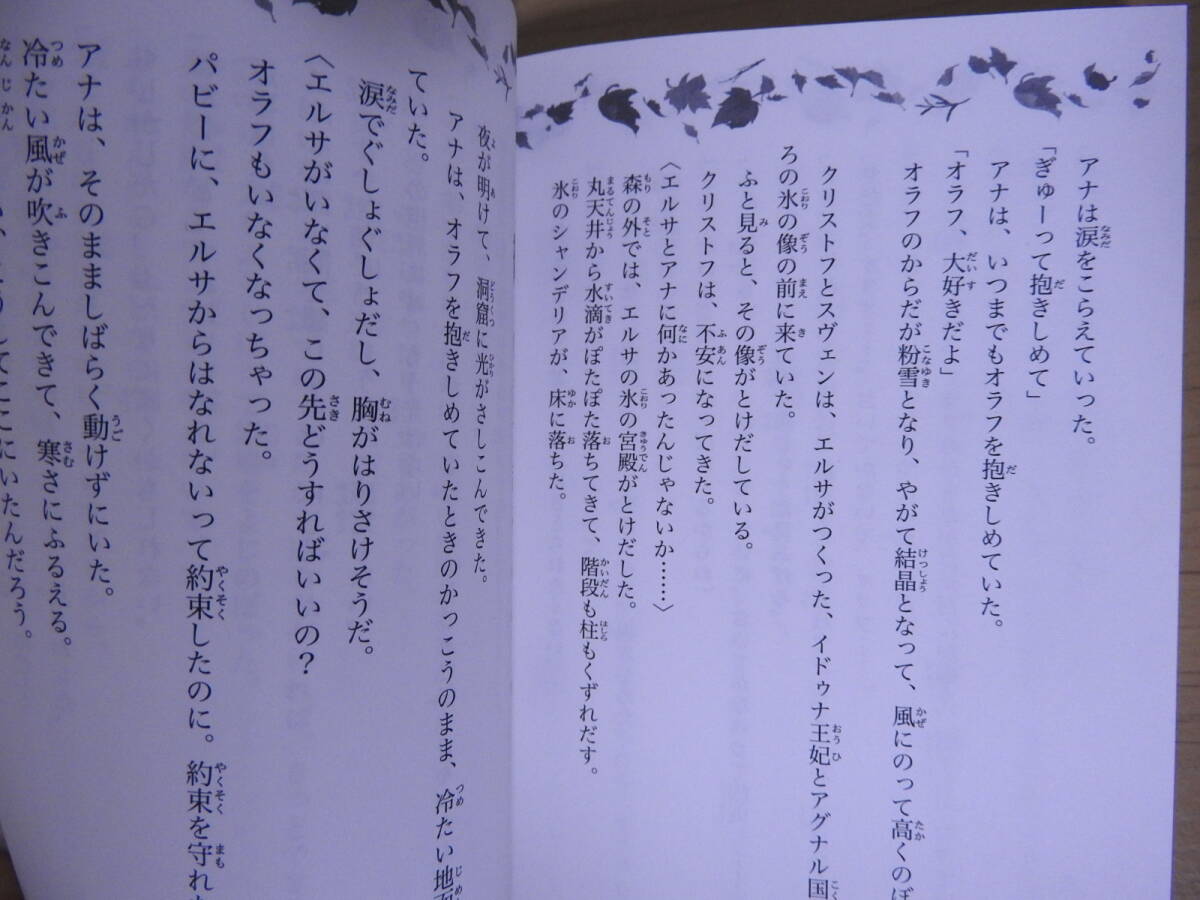 アナは涙をこらえていった。
「ぎゅーって抱きしめて」
アナは、いつまでもオラフを抱きしめていた。
「オラフ、大好きだよ」
オラフのからだが粉雪となり、やがて結晶となって、風にのって高くのぼ
クリストフとスヴェンは、エルサがつくった、イドゥナ王妃とアグナル国
ろの氷の像の前に来ていた。
ふと見ると、その像がとけだしている。
クリストフは、不安になってきた。
〈エルサとアナに何かあったんじゃないか……〉
森の外では、エルサの氷の宮殿がとけだした。
丸天井から水滴がぽたぽた落ちてきて、階段も柱もくずれだす。
氷のシャンデリアが、床に落ちた。
夜が明けて、洞窟に光がさしこんできた。
アナは、オラフを抱きしめていたときのかっこうのまま、冷たい地面
ていた。
涙でぐしょぐしょだし、胸がはりさけそうだ。
〈エルサがいなくて、この先どうすればいいの？
オラフもいなくなっちゃった。
パビーに、エルサからはなれないって約束したのに。約束を守れ
アナは、そのまましばらく動けずにいた。
冷たい風が吹きこんできて、寒さにふるえる。
してここにいたんだろう。